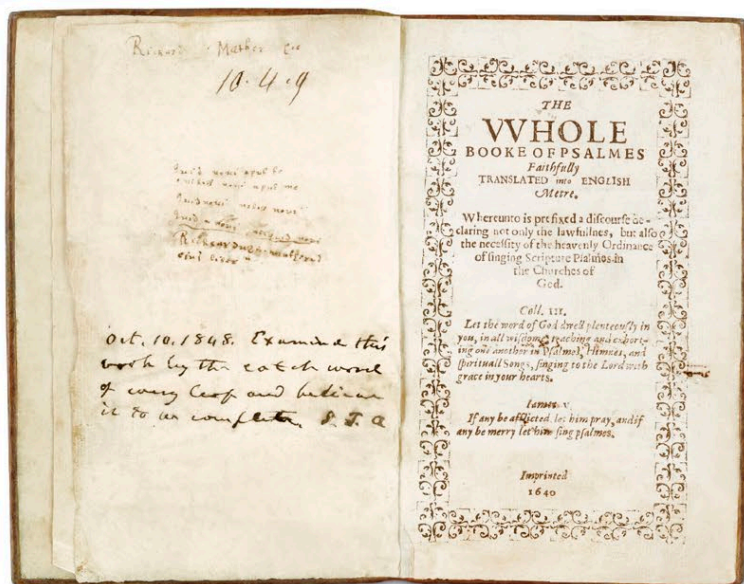 Richard Mather
10.4.9
Oct. 10. 1848. Examined this
work by the catch word
of every leaf and believe
it to be complete. S. J. A
THE
VVHOLE
BOOKE OF PSALMES
Faithfully
TRANSLATED into ENGLISH
Metre.
Whereunto is prefixed a discourse de-
claring not only the lawfullnes, but also
the necessity of the heavenly Ordinance
of singing Scripture Psalmes in
the Churches of
God.
Coll. III.
Let the word of God dwell plenteously in
you, in all wisdome, teaching and exhort-
ing one another in Psalmes, Himnes, and
spirituall Songs, singing to the Lord with
grace in your hearts.
Iames v.
If any be afflicted, let him pray, and if
any be merry let him sing psalmes.
Imprinted
1640